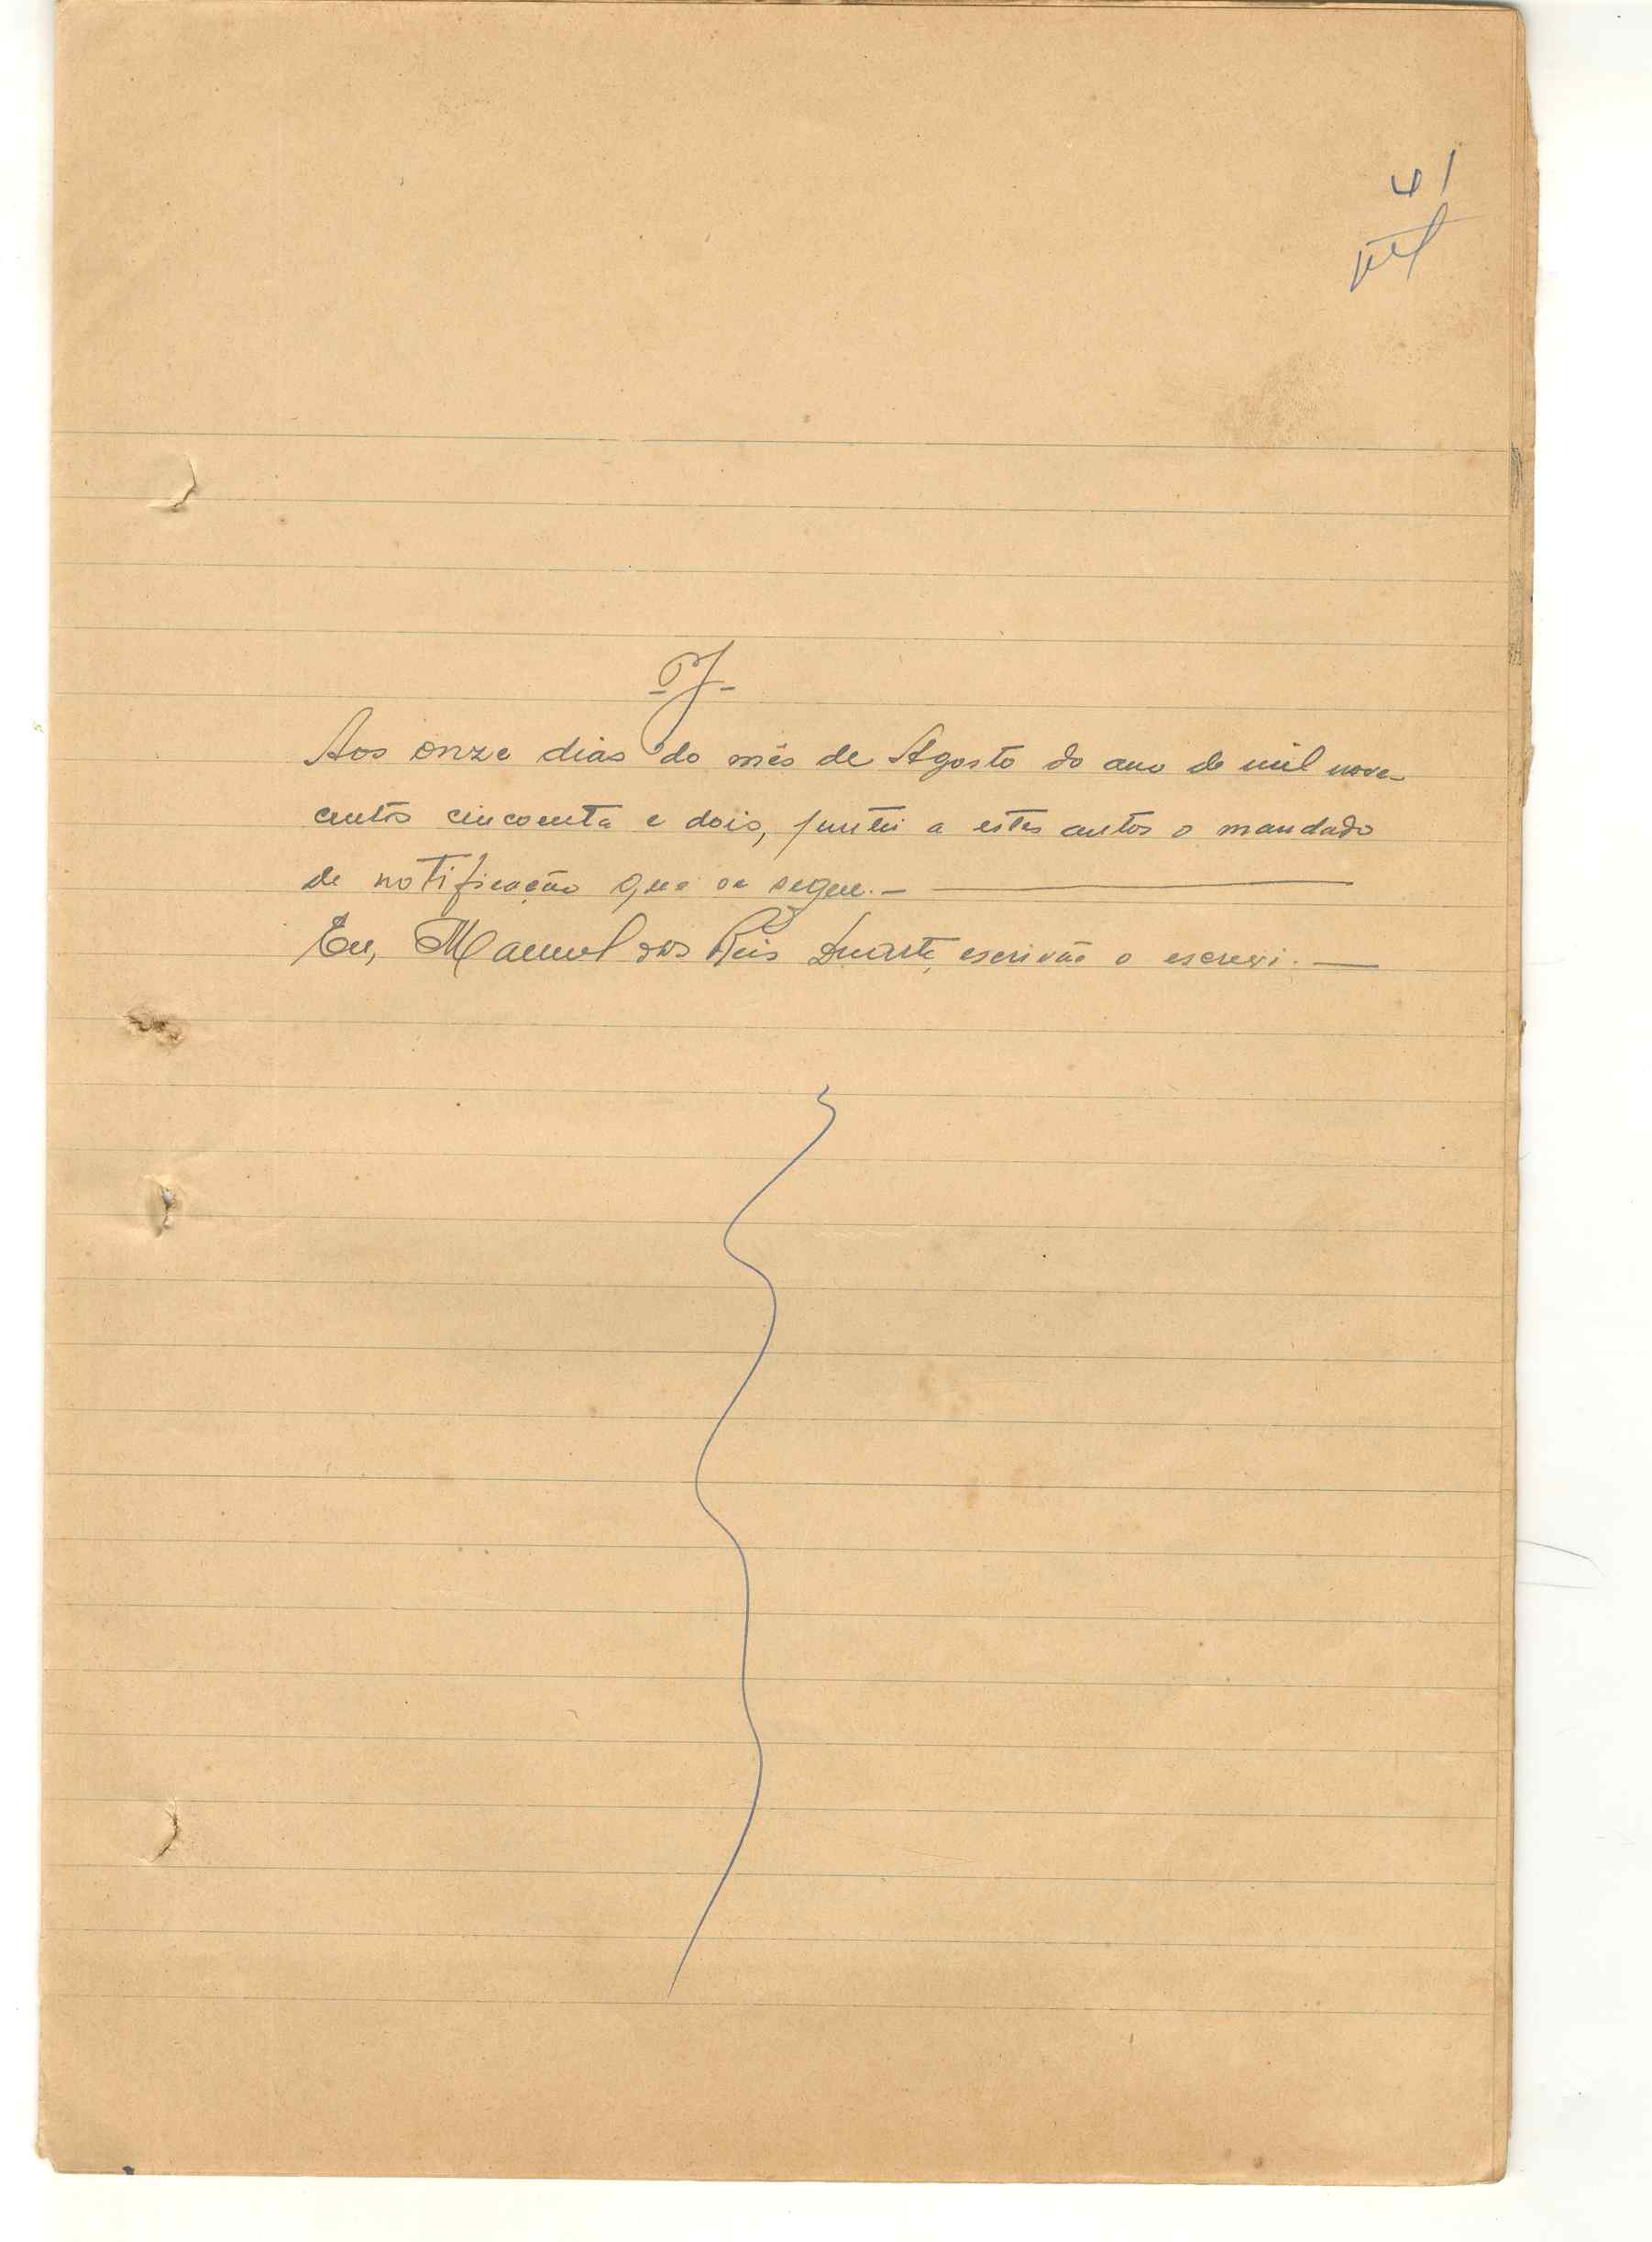 41
-J-
Aos onze dias do mês de Agosto do ano de mil nove-
centos cincoenta e dois, juntei a estes autos o mandado
de notificação que se segue.-
Eu, Manuel dos Reis Duarte, escrivão o escrevi.